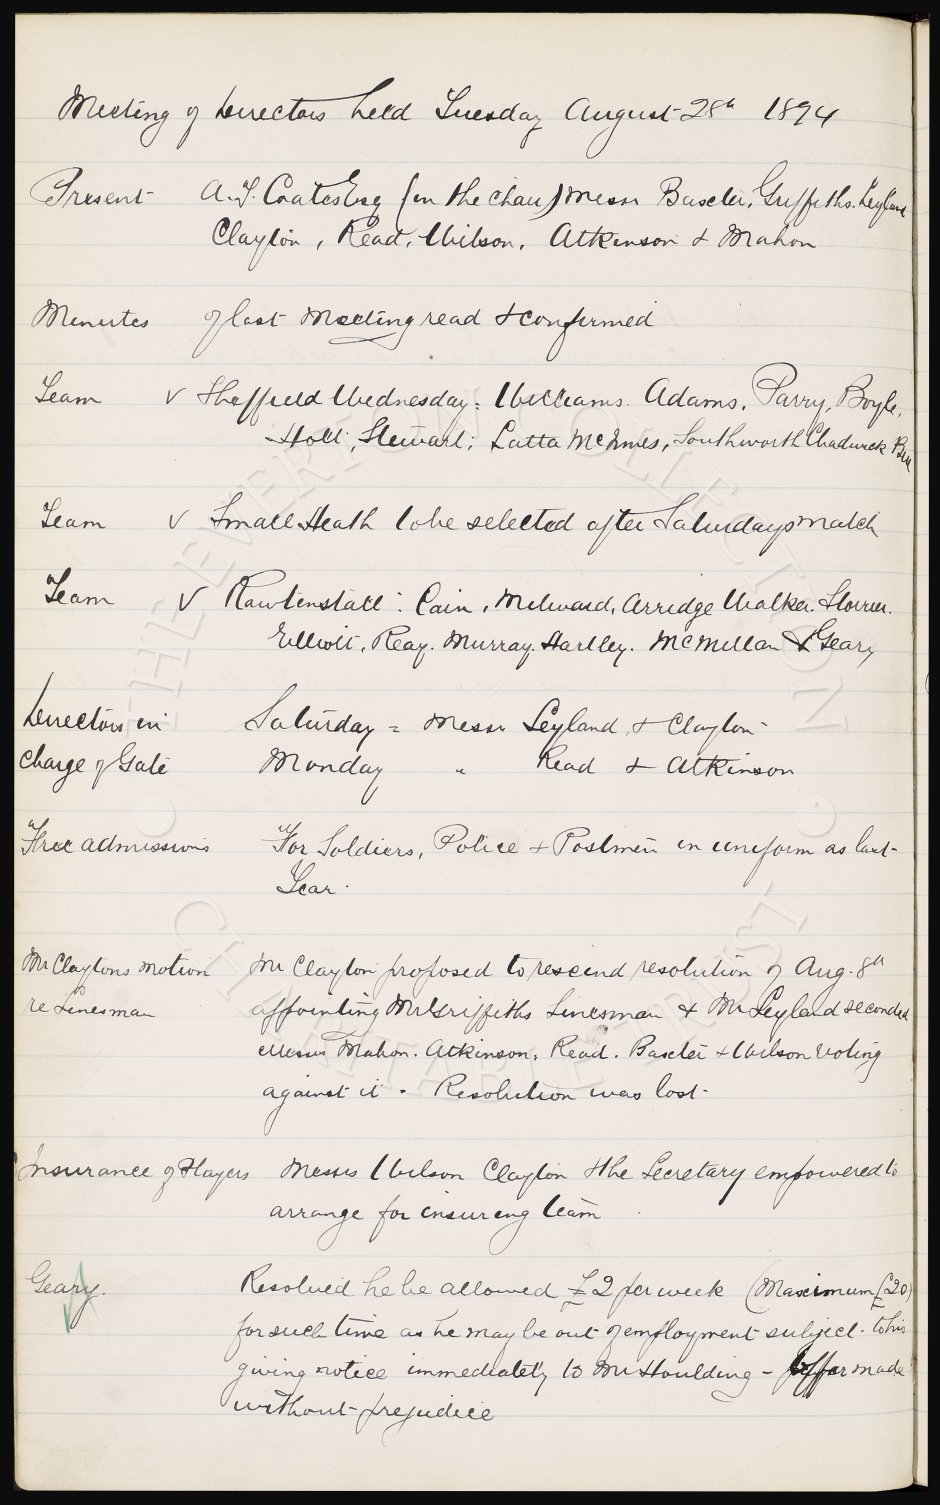 Meeting of Directors held Tuesday August 28th 1894
Present A.T. Coates Esq (in the chair) Messrs Baxter, Griffiths. Leyland
Clayton, Read, Wilson, Atkinson & Mahon
Minutes of last Meeting read & confirmed
Team v Sheffield Wednesday: Williams. Adams. Parry, Boyle,
Holt, Stewart; Latta McInnes, Southworth Chadwick Bell
Team v Small Heath to be selected after Saturdays match
Team v Rawtenstall: Cain, Milward, Arridge Walker. Storrier.
Elliott, Reay. Murray. Hartley. McMillan & Geary
Directors in Saturday = Messrs Leyland & Clayton
charge of Gate Monday " Read & Atkinson
Free admissions For Soldiers, Police & Postmen in uniform as last
Year.
Mr Claytons motion Mr Clayton proposed to rescind resolution of Aug. 8th
re Linesman appointing Mr Griffiths Linesman & Mr Leyland seconded
Messrs Mahon. Atkinson, Read. Baxter & Wilson voting
against it - Resolution was lost.
Insurance of Players Messrs Wilson Clayton & the Secretary empowered to
arrange for insuring team
Geary. Resolved he be allowed £2 per week (Maximum £20)
for such time as he may be out of employment subject to his
giving notice immediately to Mr Houlding - offer made
without prejudice
THE EVERTON COLLECTION
CHARITABLE TRUST